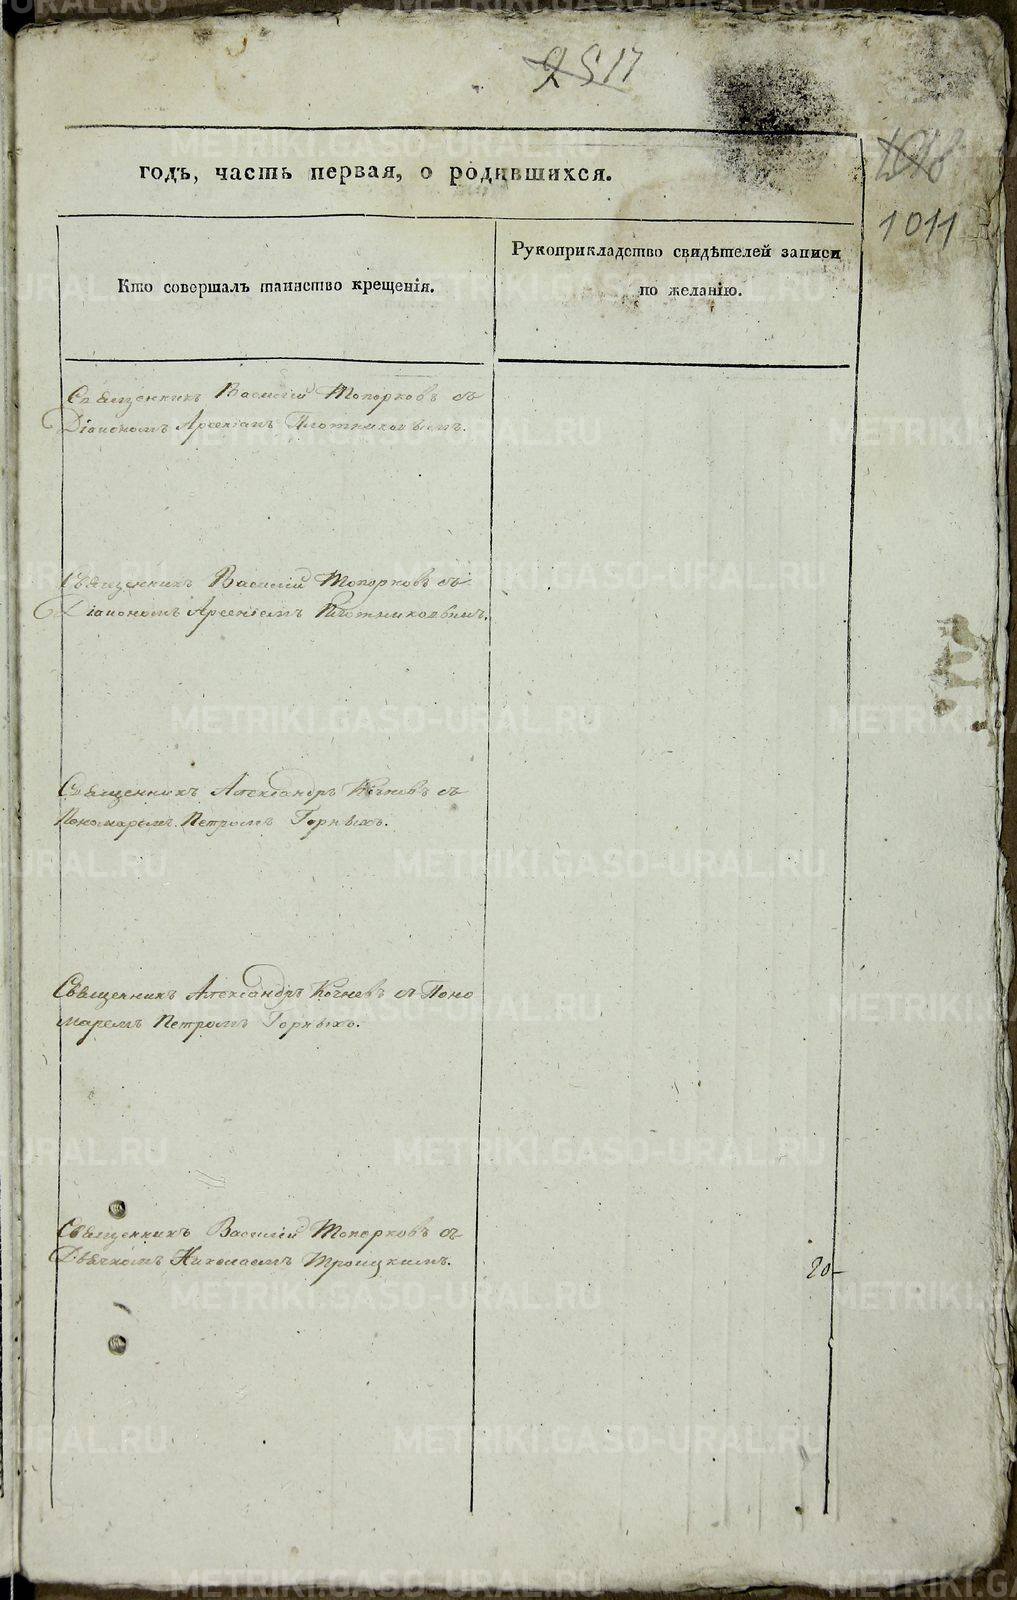 2517
1018
годъ, часть первая, о родившихся.
1011
Рукоприкладство свидѣтелей записи
по желанію.
Кто совершалъ таинство крещенія.
Священникъ Василій Топорковъ съ
Діакономъ Арсеніемъ Плотниковымъ.
Священникъ Василій Топорковъ съ
Діакономъ Арсеніемъ Плотниковымъ.
Священникъ Александръ Кочневъ съ
Пономаремъ Петромъ Горныхъ.
Священникъ Александръ Кочневъ съ Поно
маремъ Петромъ Горныхъ.
Священникъ Василій Топорковъ съ
Дьячкомъ Николаемъ Троицкимъ.
20
METRIKI.GASO-URAL.RU